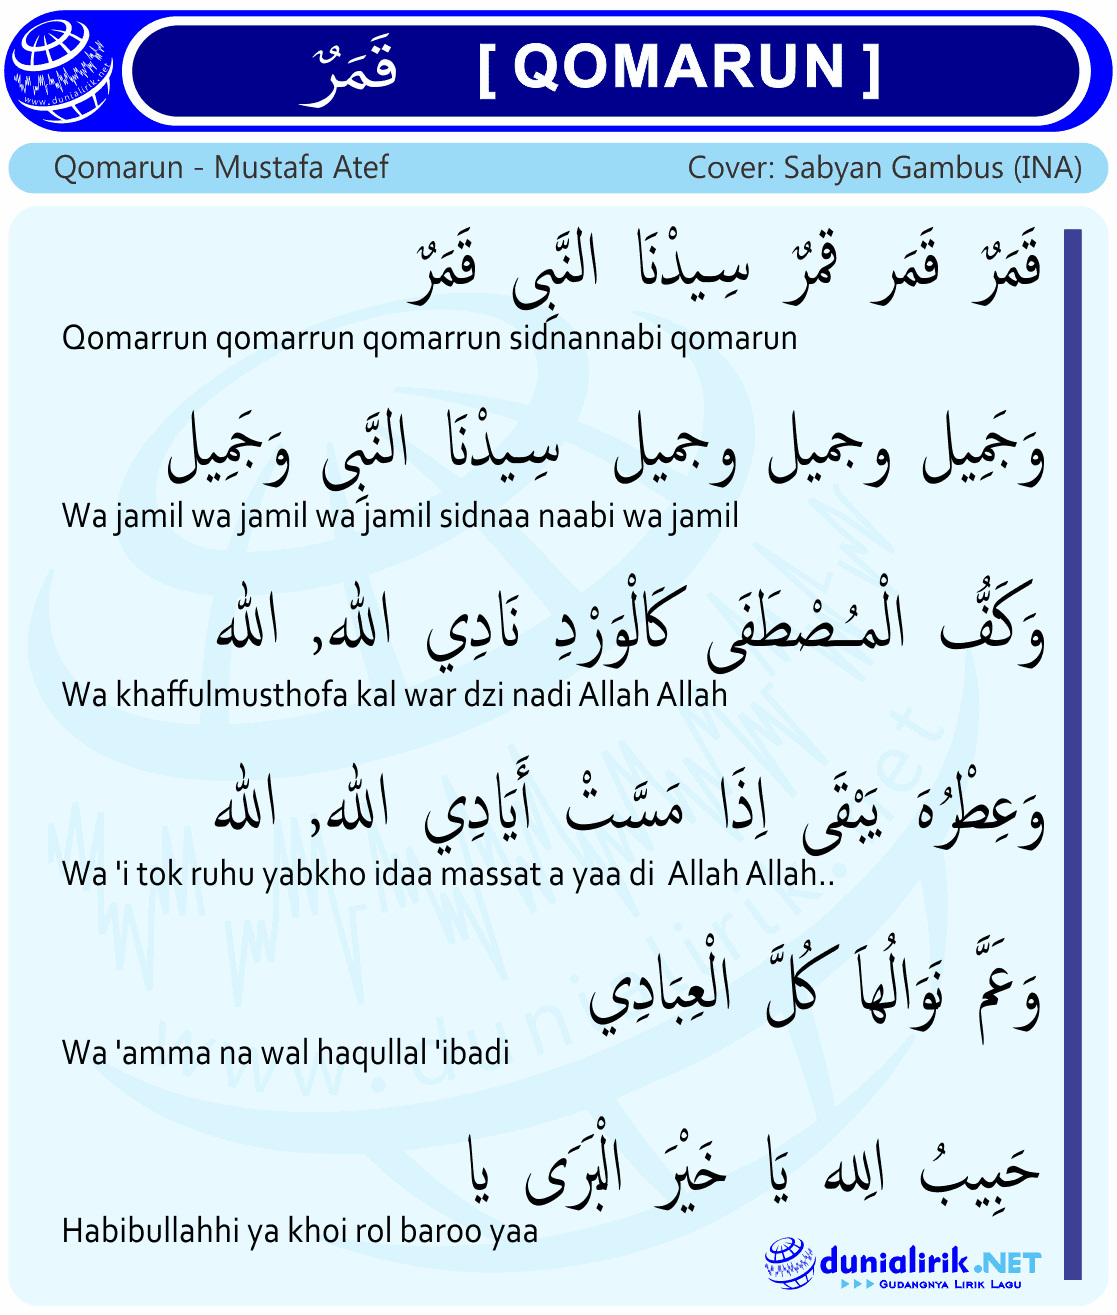 www.dunialirik.net
قَمَرٌ [ QOMARUN ]
Qomarun - Mustafa Atef Cover: Sabyan Gambus (INA)
قَمَرٌ قَمَر قمرٌ سِـيدْنَا النَّبِى قَمَرٌ
Qomarrun qomarrun qomarrun sidnannabi qomarun
وَجَمِيل وجميل وجميل سِـيدْنَا النَّبِى وَجَمِيل
Wa jamil wa jamil wa jamil sidnaa naabi wa jamil
وَكَفُّ الْمُـصْطَفَى كَالْوَرْدِ نَادِي الله, الله
Wa khaffulmusthofa kal war dzi nadi Allah Allah
وَعِطْرُهَ يَبْقَى اِذَا مَسَّتْ أَيَادِي الله, الله
Wa 'i tok ruhu yabkho idaa massat a yaa di Allah Allah..
وَعَمَّ نَوَالُهاَ كُلَّ الْعِبَادِي
Wa 'amma na wal haqullal 'ibadi
حَبِيبُ اللِه يَا خَيْرَ الْبَرَى يا
Habibullahhi ya khoi rol baroo yaa
dunialirik.NET
GUDANGNYA LIRIK LAGU
www.dunialirik.net